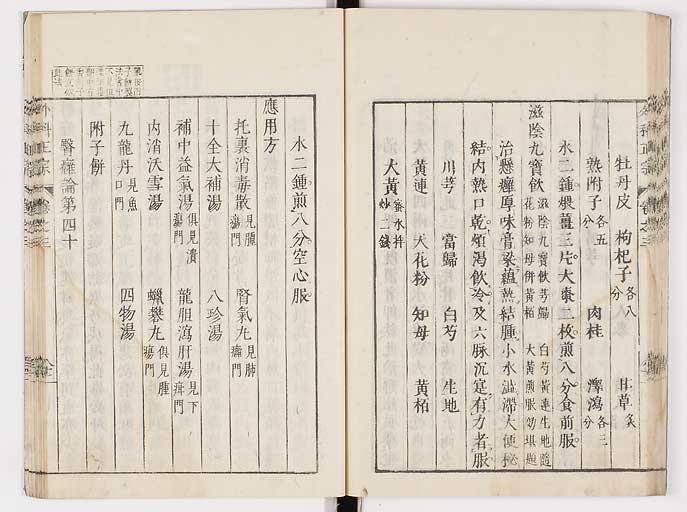 牡丹皮 枸杞子各八分 甘草炙
熟附子各五分 肉桂 澤瀉各三分
水二鍾煨薑三片大棗二枚煎八分食前服
滋陰九寶飲 滋陰九寶飲芎歸 白芍黃連生地隨
花粉知母併黃栢 大黃煎服効堪題
治懸癰厚味膏粱蘊熱結腫小水澁滯大便秘
結内熱口乾煩渴飲冷及六脉沉實有力者服
川芎 當歸 白芍 生地
黃連 天花粉 知母 黃栢
大黃蜜水拌炒二錢
水二鍾煎八分空心服
應用方
托裏消毒散見腫瘍門 腎氣丸見肺癰門
十全大補湯 八珍湯
補中益氣湯俱見潰瘍門 龍胆瀉肝湯見下疳門
内消沃雪湯 蠟礬丸俱見腫瘍門
九龍丹見魚口門 四物湯
附子餅
臀癰論第四十
外科正宗 卷之三